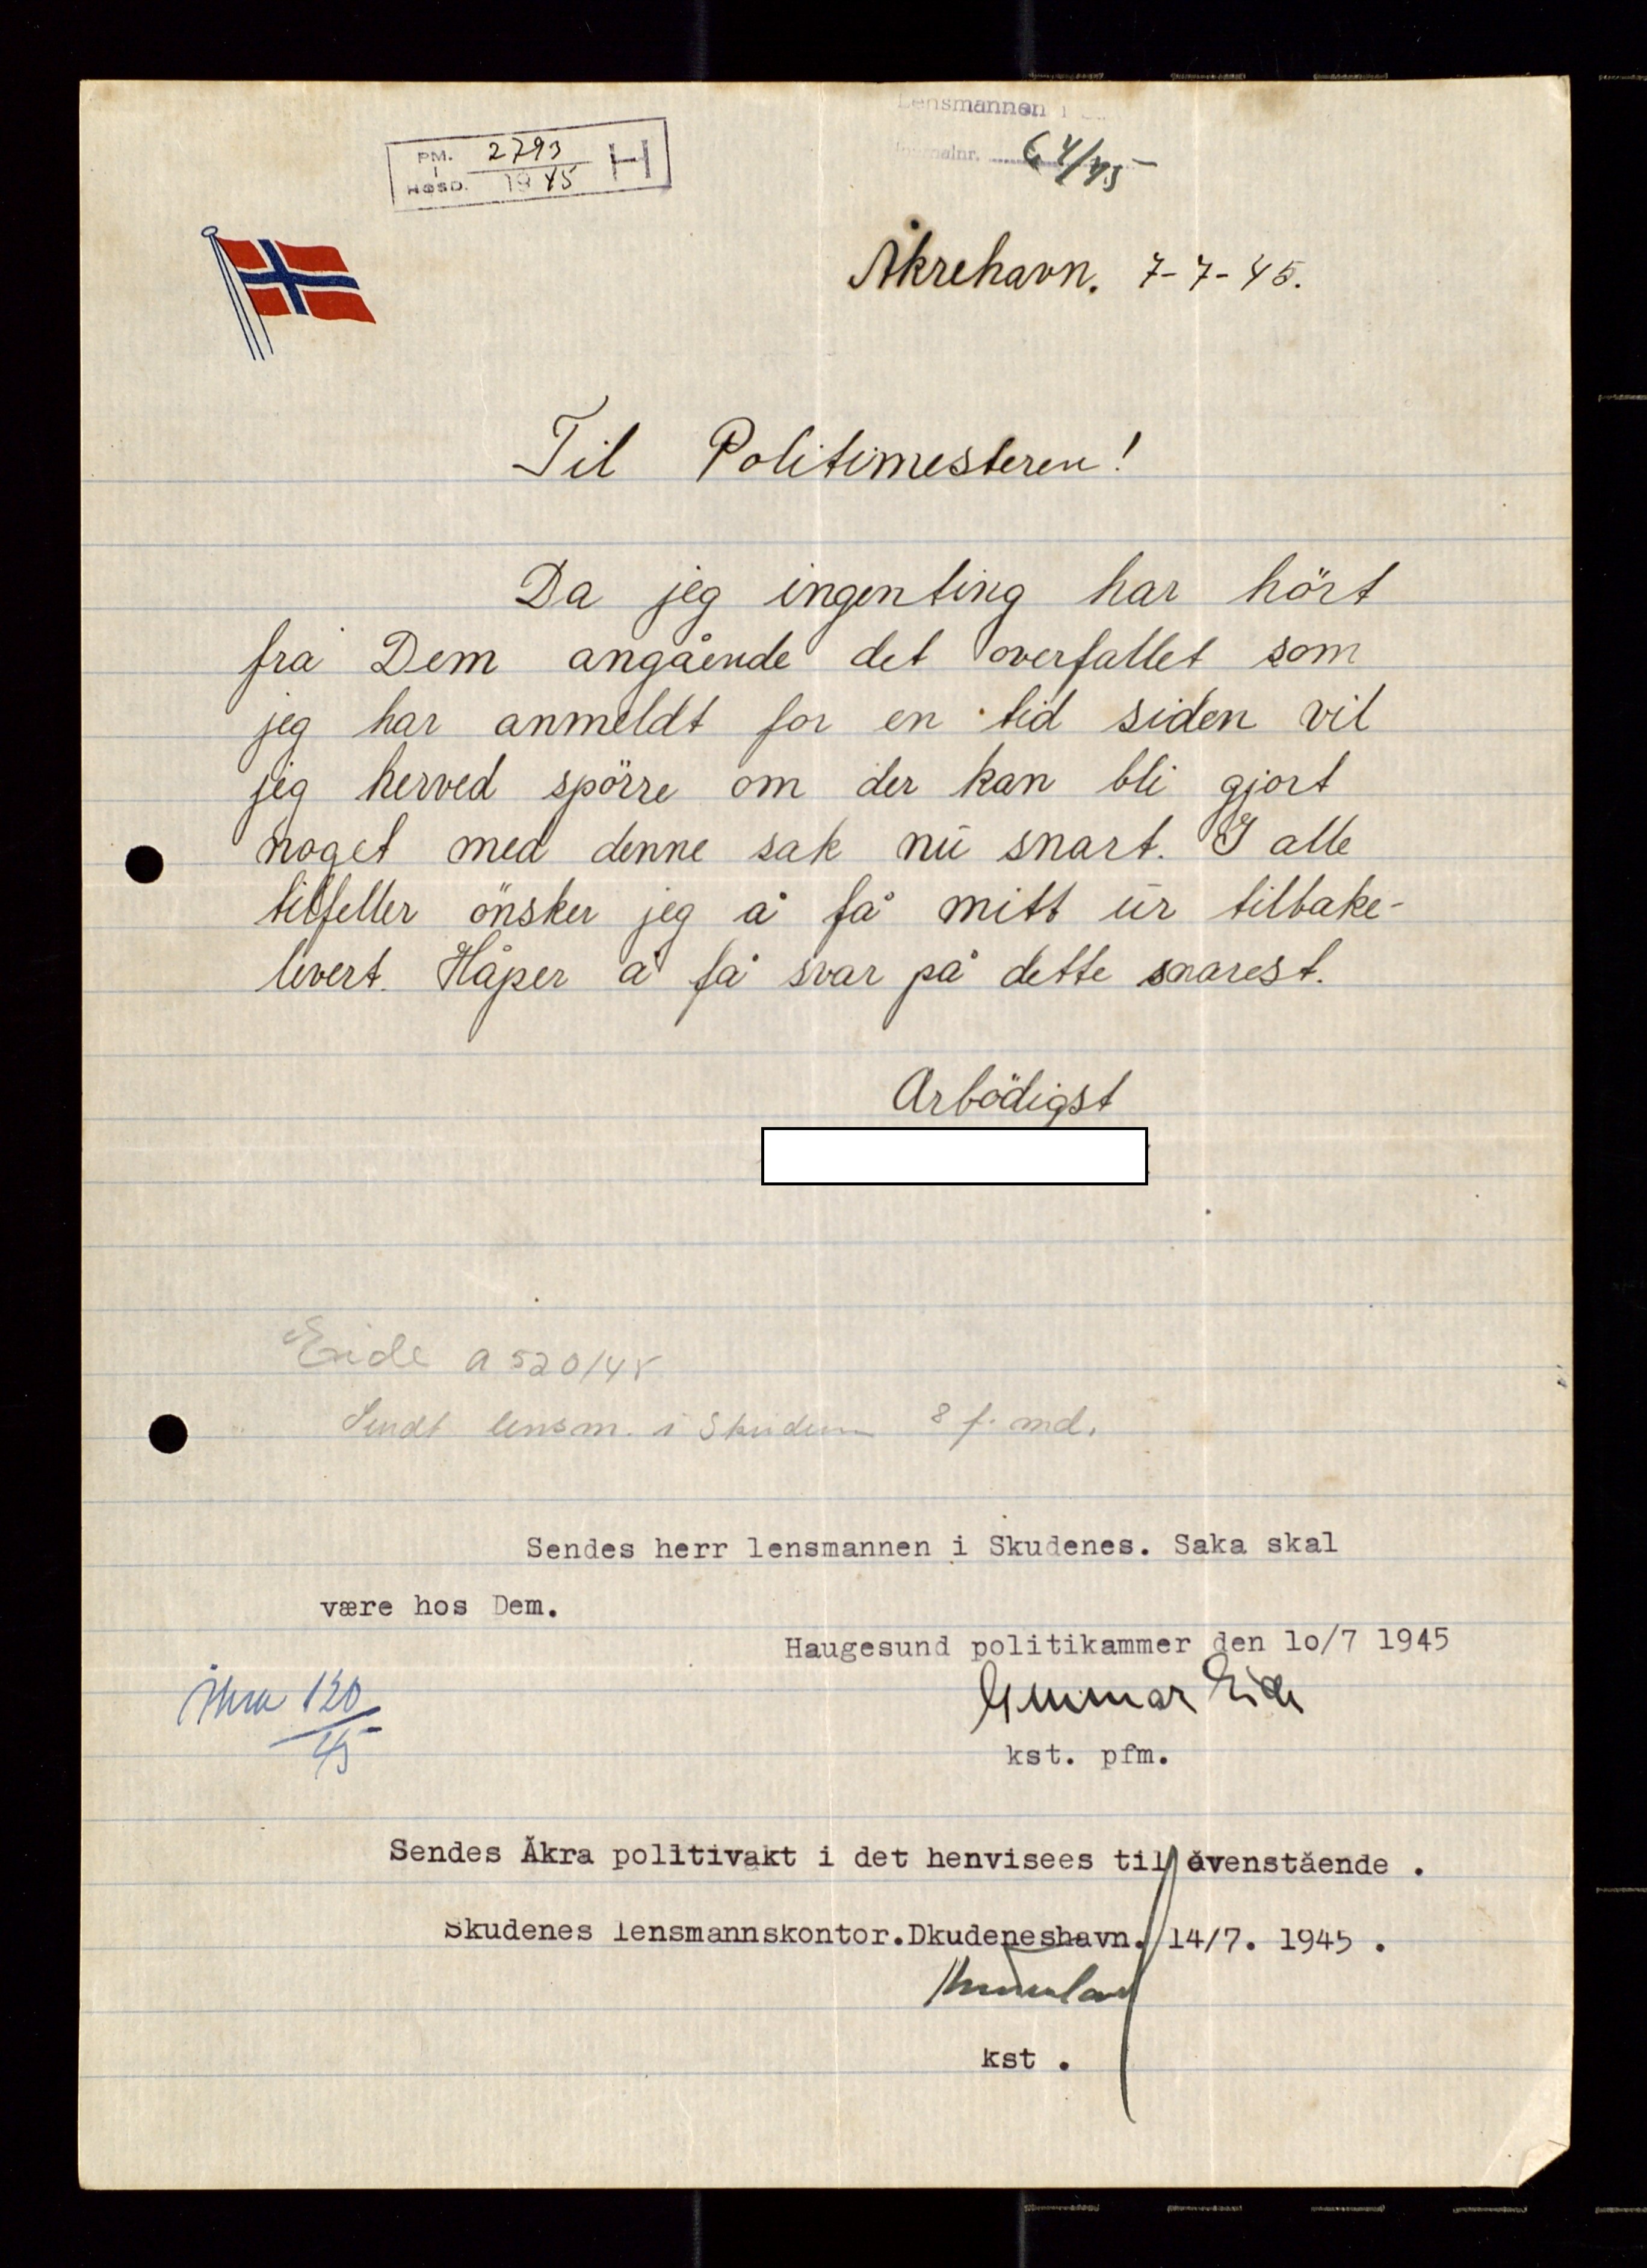 PM. 2793 H
I
HGSD. 1945
Lensmannen i
Journalnr. 64/45
Åkrehavn. 7-7-45.
Til Politimesteren!
Da jeg ingenting har hört
fra Dem angående det overfallet som
jeg har anmeldt for en tid siden vil
jeg herved spörre om der kan bli gjort
noget med denne sak nū snart. I alle
tilfeller önsker jeg å få mitt ūr tilbake-
levert. Håper å få svar på dette snarest.
Arbödigst
Eide A 520/45
Sendt lensm. i Skudenes 8 f. md.
Sendes herr lensmannen i Skudenes. Saka skal
være hos Dem.
Haugesund politikammer den lo/7 1945
Gunnar Eide
kst. pfm.
Åkra 120/45
Sendes Åkra politivakt i det henvisees til ovenstående .
Skudenes lensmannskontor.Dkudeneshavn. 14/7. 1945 .
kst .